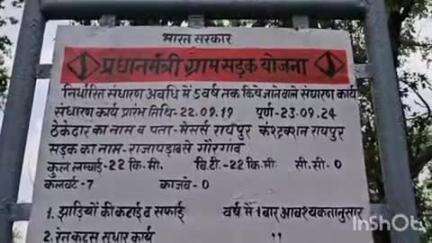 भारत सरकार
प्रधानमंत्री ग्राम सड़क योजना
निर्धारित संधारण अवधि में 5 वर्ष तक किये जाने वाले संधारण कार्य
संधारण कार्य प्रारंभ तिथि-22.09.19 पूर्ण-23.09.24
ठेकेदार का नाम व पता-मैसर्स रायपुर कंश्ट्रक्शन रायपुर
सड़क का नाम-राजापड़ाव से गोरगांव
कुल लम्बाई-22 कि.मी. बि.टी.-22 कि.मी. सी.सी.-0
कलवर्ट-7 काजवे-0
1. झाड़ियों की कटाई व सफाई वर्ष में 1 बार आवश्यकतानुसार
2. रेनकट्स सुधार कार्य ,,
InShOt